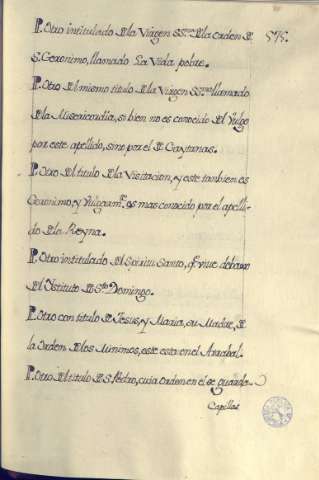 P. Otro intitulado de la Virgen SSma. de la orden de 575.
S. Geronimo, llamado La Vida pobre.
P. Otro del mismo titulo de la Virgen SSma. llamado
de la Misericordia, si bien no es conocido del Vulgo
por este apellido, sino por el de Gaytanas.
P. Otro del titulo de la Visitacion, y este tambien es
Geronimo, y Vulgarmte. es mas conocido por el apelli-
do de la Reyna.
P. Otro intitulado del Spiritu Santo, q. vive debaxo
del Ystituto de Sto. Domingo.
P. Otro con titulo de Jesus, y Maria, su Madre, de
la orden de los Minimos, este esta en el Arrabal.
P. Otro del titulo de S. Pedro, cuia orden en el se guarda
Capillas